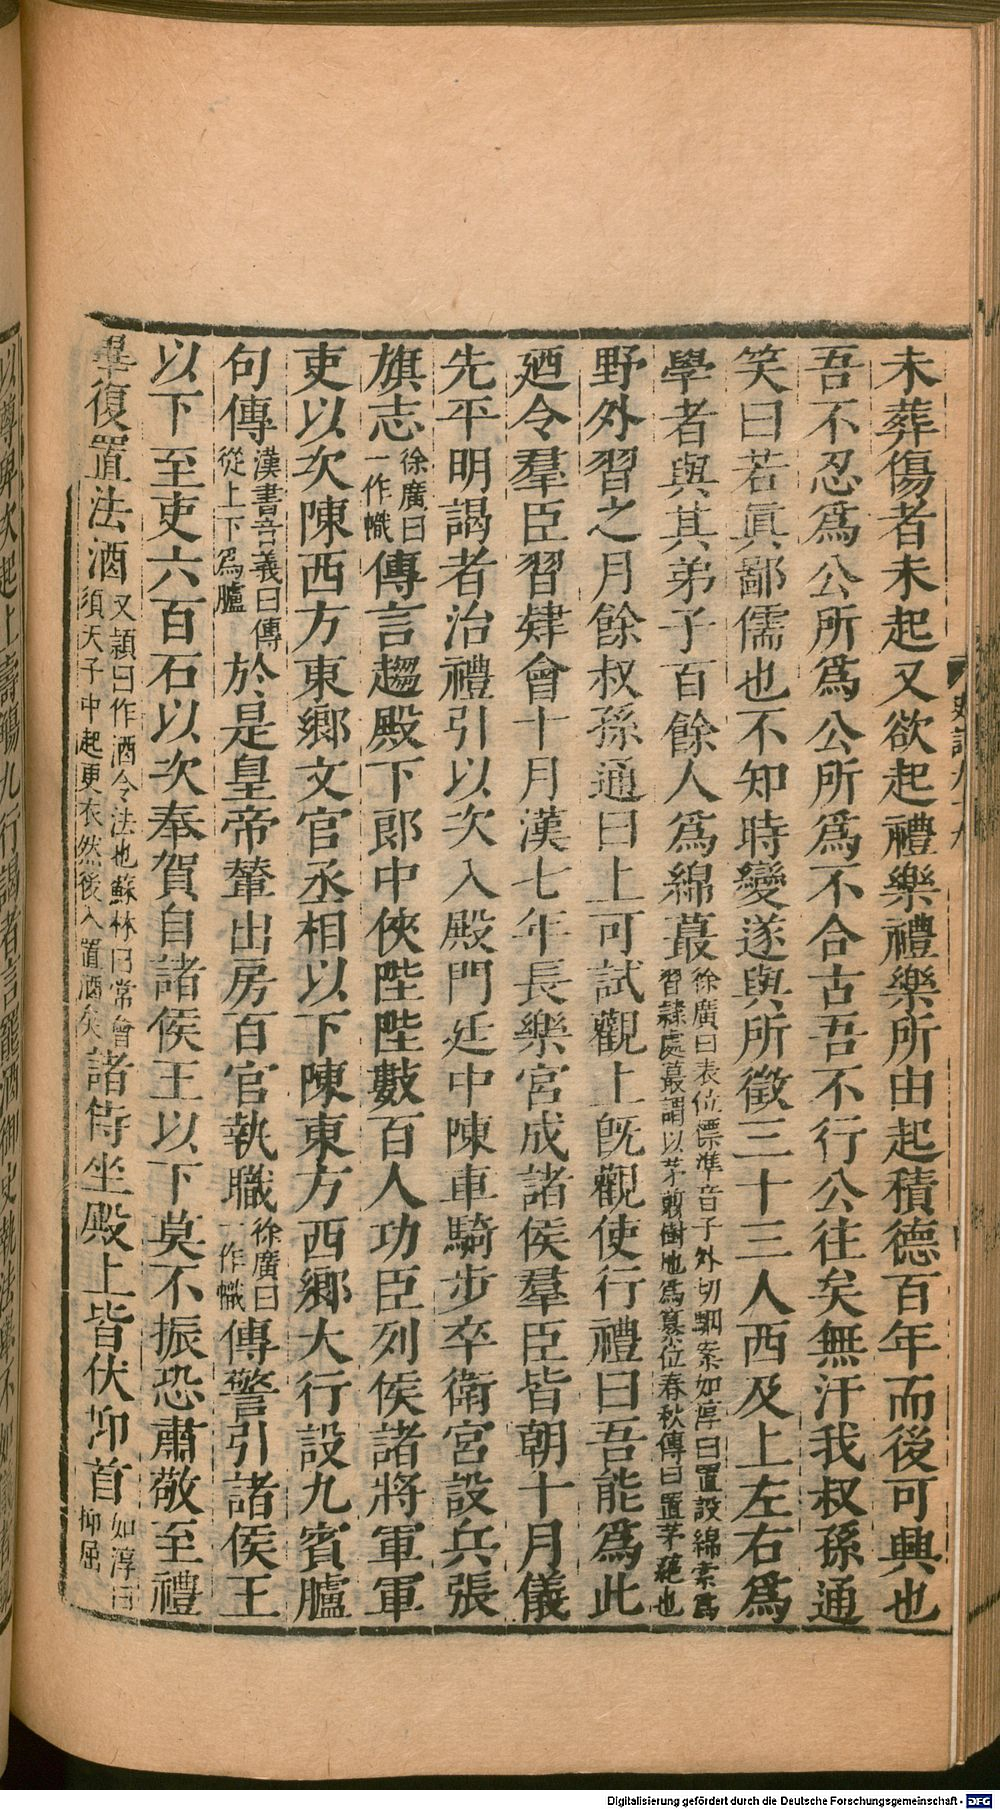 未葬傷者未起又欲起禮樂禮樂所由起積德百年而後可興也
吾不忍爲公所爲公所爲不合古吾不行公往矣無汙我叔孫通
笑曰若眞鄙儒也不知時變遂與所徵三十三人西及上左右爲
學者與其弟子百餘人爲綿蕞徐廣曰表位標準音子外切駰案如淳曰置設綿索爲習隷處蕞謂以茅剪樹地爲纂位春秋傳曰置茅蕝也
野外習之月餘叔孫通曰上可試觀上旣觀使行禮曰吾能爲此
廼令羣臣習肄會十月漢七年長樂宮成諸侯羣臣皆朝十月儀
先平明謁者治禮引以次入殿門廷中陳車騎步卒衛宮設兵張
旗志徐廣曰一作幟傳言趨殿下郎中俠陛陛數百人功臣列侯諸將軍軍
吏以次陳西方東鄉文官丞相以下陳東方西鄉大行設九賓臚
句傳漢書音義曰傳從上下爲臚於是皇帝輦出房百官執職徐廣曰一作幟傳警引諸侯王
以下至吏六百石以次奉賀自諸侯王以下莫不振恐肅敬至禮
畢復置法酒文穎曰作酒令法也蘇林曰常會須天子中起更衣然後入置酒矣諸侍坐殿上皆伏抑首如淳曰抑屈
史記九十九
Digitalisierung gefördert durch die Deutsche Forschungsgemeinschaft - DFG